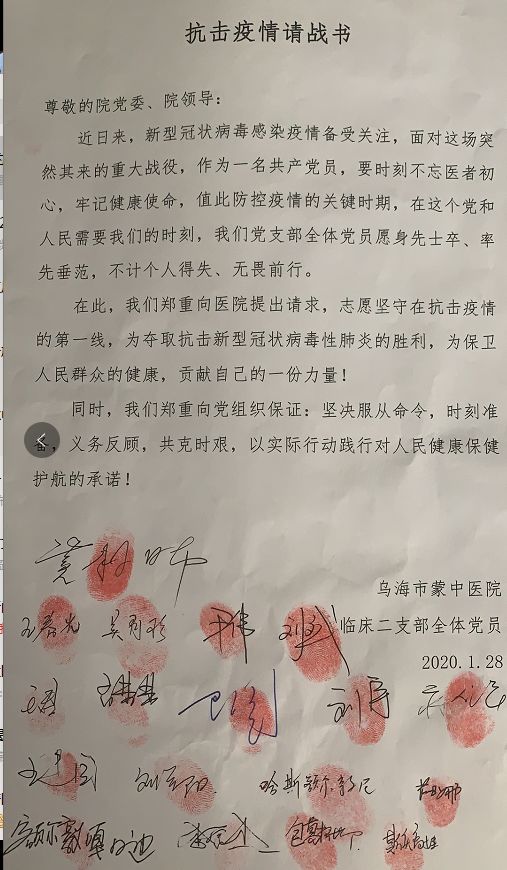 抗击疫情请战书
尊敬的院党委、院领导：
近日来，新型冠状病毒感染疫情备受关注，面对这场突
然其来的重大战役，作为一名共产党员，要时刻不忘医者初
心，牢记健康使命，值此防控疫情的关键时期，在这个党和
人民需要我们的时刻，我们党支部全体党员愿身先士卒、率
先垂范，不计个人得失、无畏前行。
在此，我们郑重向医院提出请求，志愿坚守在抗击疫情
的第一线，为夺取抗击新型冠状病毒性肺炎的胜利，为保卫
人民群众的健康，贡献自己的一份力量！
同时，我们郑重向党组织保证：坚决服从命令，时刻准
备，义务反顾，共克时艰，以实际行动践行对人民健康保健
护航的承诺！
乌海市蒙中医院
王春光
临床二支部全体党员
2020.1.28
哈斯额尔敦尼